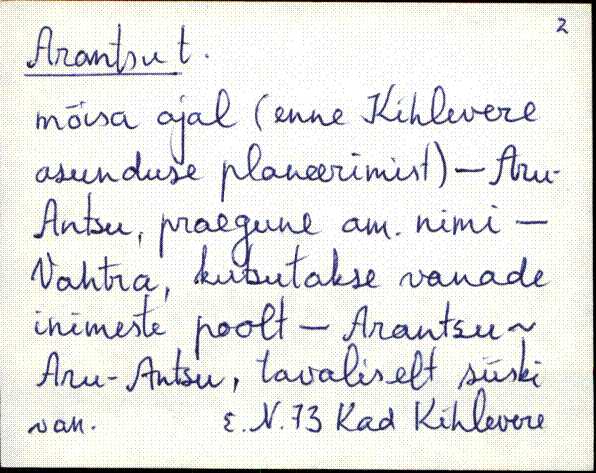 2
Arantsu t.
mõisa ajal (enne Kihlevere
asunduse planeerimist) – Aru-
Antsu, praegune am. nimi –
Vahtra, kutsutakse vanade
inimeste poolt – Arantsu ~
Aru-Antsu, tavaliselt siiski
van. E. N. 73 Kad Kihlevere